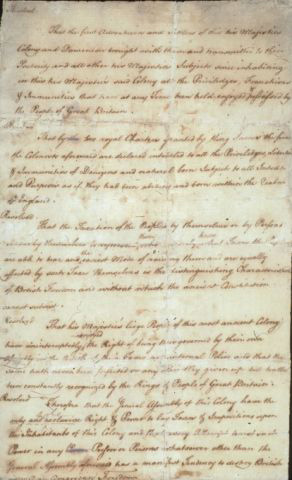 Resolved
That the first Adventurers and Settlers of this his Majesties
Colony and Dominion brought with them and transmitted to their
Posterity and all other his Majesties Subjects since inhabiting
in this his Majesties said Colony all the Priviledges, Franchises
& Immunities that have at any Time been held, enjoyed, & possessed by
the People of Great Britain.
Resolved
That by two royal Charters granted by King James the first
the Colonists aforesaid are declared intituled to all the Priviledges, Liberties
& Immunities of Denizens and natural born Subjects to all Intents
and Purposes as if they had been abiding and born within the Realm
of England.
Resolved
That the Taxation of the People by themselves or by Persons
chosen by themselves to represent who Taxes the People
are able to bear and the easiest Mode of raising them and are equally
affected by such Taxes Themselves is the distinguishing Characteristick
of British Freedom and without which the ancient Constitution
cannot subsist.
Resolved
That his Majesties liege People of this most ancient Colony
have uninterruptedly enjoyed the Right of being governed by their own
Assembly in the Article of their Taxes and internal Police and that the
same hath never been forfeited or any other Way given up but hath
been constantly recognized by the Kings & People of Great Britain.
Resolved
Therefore that the General Assembly of this Colony have the
only and exclusive Right & Power to lay Taxes & Impositions upon
the Inhabitants of this Colony and that every Attempt to vest such
Power in any Person or Persons whatsoever other than the
General Assembly aforesaid has a manifest Tendency to destroy British
as American Freedom